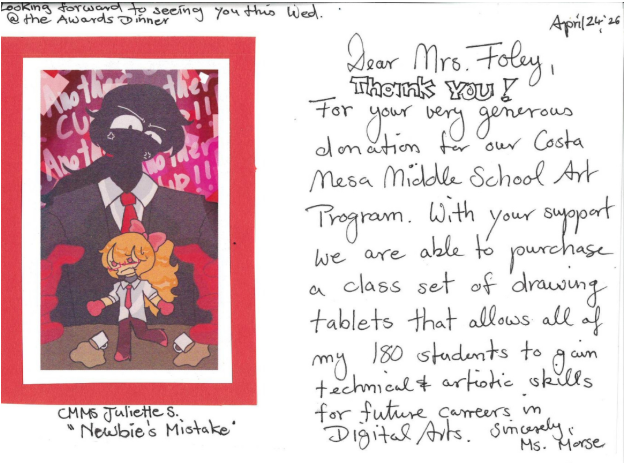 Looking forward to seeing you this Wed.
@ the Awards Dinner
April 24, '26
Dear Mrs. Foley,
Thank You!
For your very generous
donation for our Costa
Mesa Middle School Art
Program. With your support
we are able to purchase
a class set of drawing
tablets that allows all of
my 180 students to gain
technical & artistic skills
for future careers in
Digital Arts. Sincerely,
Ms. Morse
Another
CU
!!!
Another
UP!!!
CMMS Juliette S.
"Newbie's Mistake"